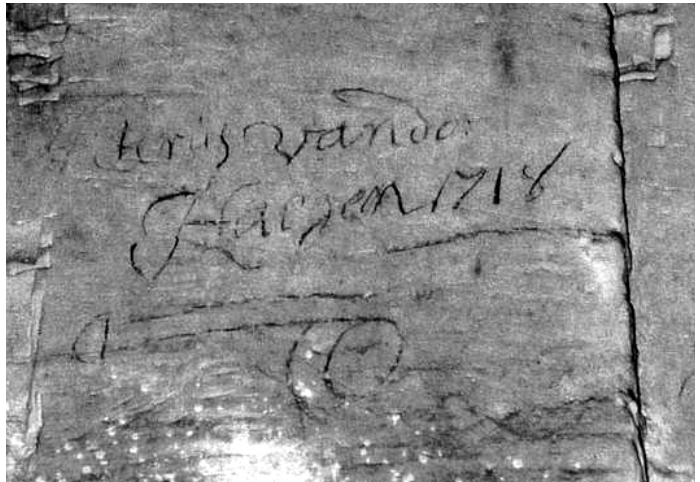 terus vander
Haegen 1718